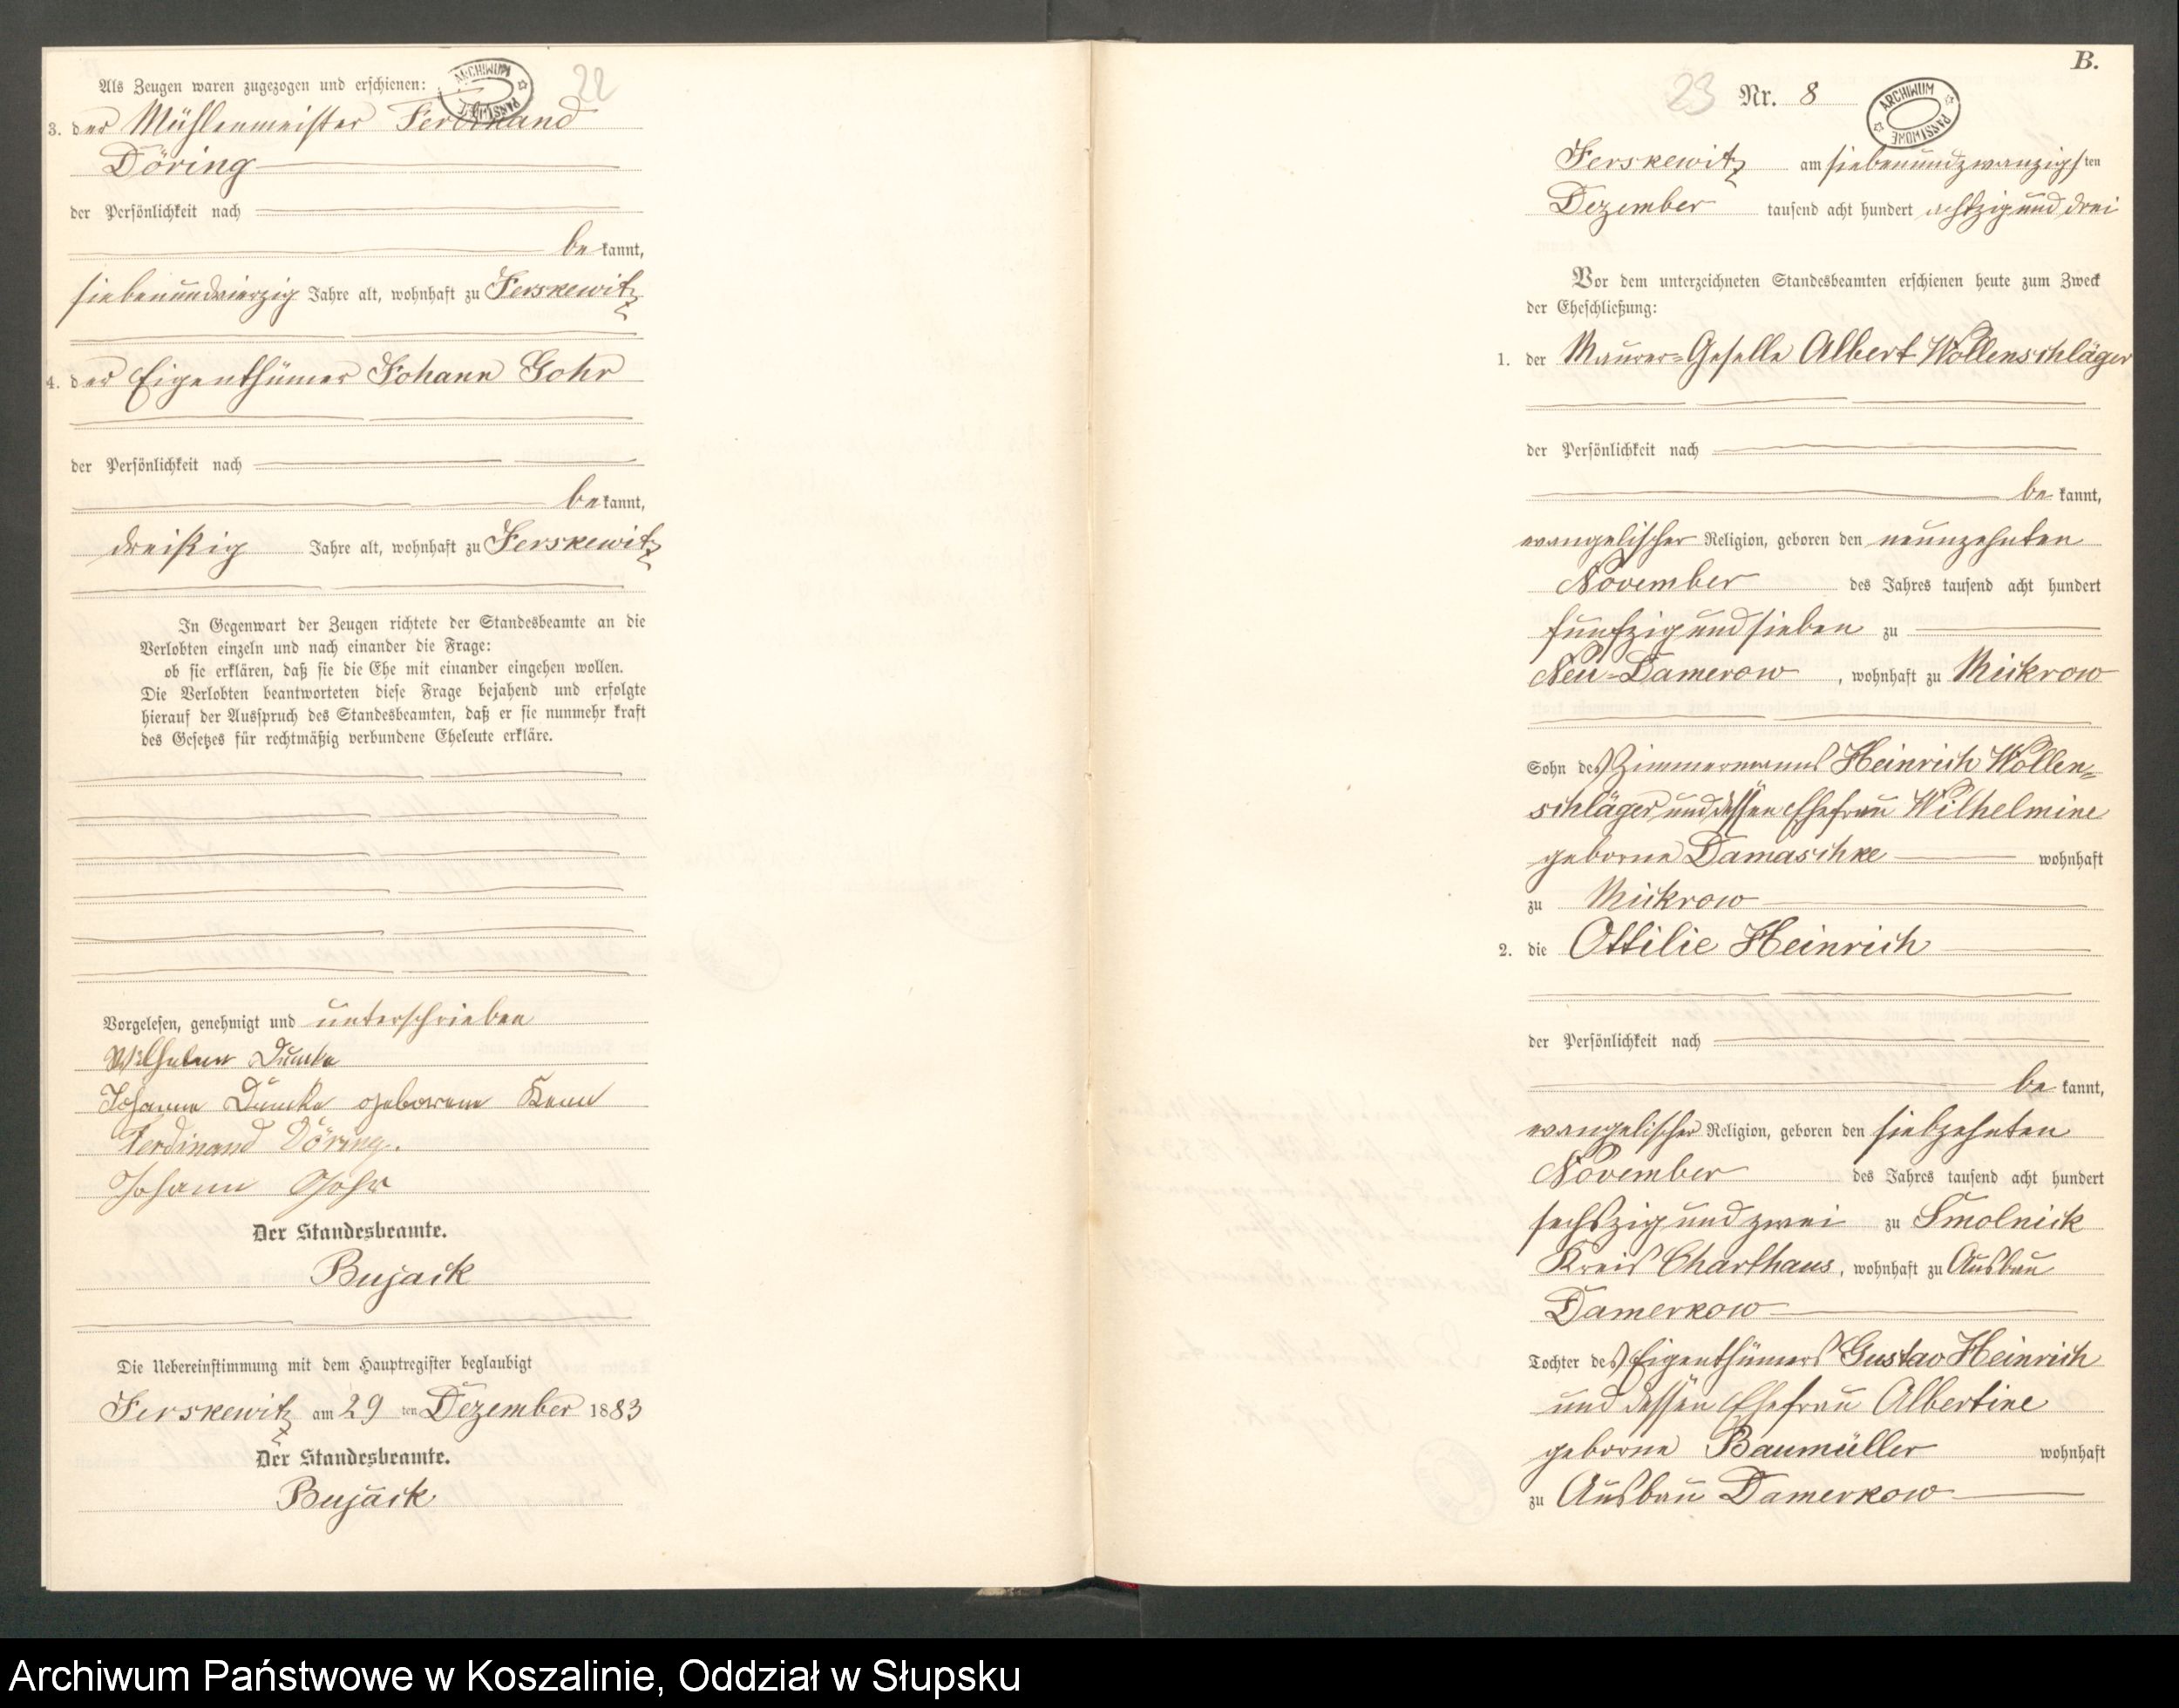 22
Als Zeugen waren zugezogen und erschienen:
ARCHIWUM PAŃSTWOWE
3. der Mühlenmeister Ferdinand
Döring
der Persönlichkeit nach
be kannt,
siebenundvierzig Jahre alt, wohnhaft zu Jerskewitz
4. der Eigenthümer Johann Gohr
der Persönlichkeit nach
be kannt,
dreißig Jahre alt, wohnhaft zu Jerskewitz
In Gegenwart der Zeugen richtete der Standesbeamte an die
Verlobten einzeln und nach einander die Frage:
ob sie erklären, daß sie die Ehe mit einander eingehen wollen.
Die Verlobten beantworteten diese Frage bejahend und erfolgte
hierauf der Ausspruch des Standesbeamten, daß er sie nunmehr kraft
des Gesetzes für rechtmäßig verbundene Eheleute erkläre.
Vorgelesen, genehmigt und unterschrieben
Wilhelm
Johanna geborene
Ferdinand Döring.
Johann Gohr
Der Standesbeamte.
Bujack
Die Uebereinstimmung mit dem Hauptregister beglaubigt
Jerskewitz am 29 ten Dezember 1883
Der Standesbeamte.
Bujack
B.
23 Nr. 8
ARCHIWUM PAŃSTWOWE
Jerskewitz am siebenundzwanzigsten
Dezember tausend acht hundert achtzig und drei
Vor dem unterzeichneten Standesbeamten erschienen heute zum Zweck
der Eheschließung:
1. der Maurer-Geselle Albert Wollenschläger
der Persönlichkeit nach
be kannt,
evangelischer Religion, geboren den neunzehnten
November des Jahres tausend acht hundert
fünfzig und sieben zu
Neu-Damerow, wohnhaft zu Mickrow
Sohn des Zimmermanns Heinrich Wollen-
schläger und dessen Ehefrau Wilhelmine
geborne Damaschke wohnhaft
zu Mickrow
2. die Ottilie Heinrich
der Persönlichkeit nach
be kannt,
evangelischer Religion, geboren den siebzehnten
November des Jahres tausend acht hundert
sechszig und zwei zu Smolnick
Kreis Charthaus, wohnhaft zu Ausbau
Damerkow
Tochter des Eigenthümers Gustav Heinrich
und dessen Ehefrau Albertine
geborne Baumüller wohnhaft
zu Ausbau Damerkow
Archiwum Państwowe w Koszalinie, Oddział w Słupsku